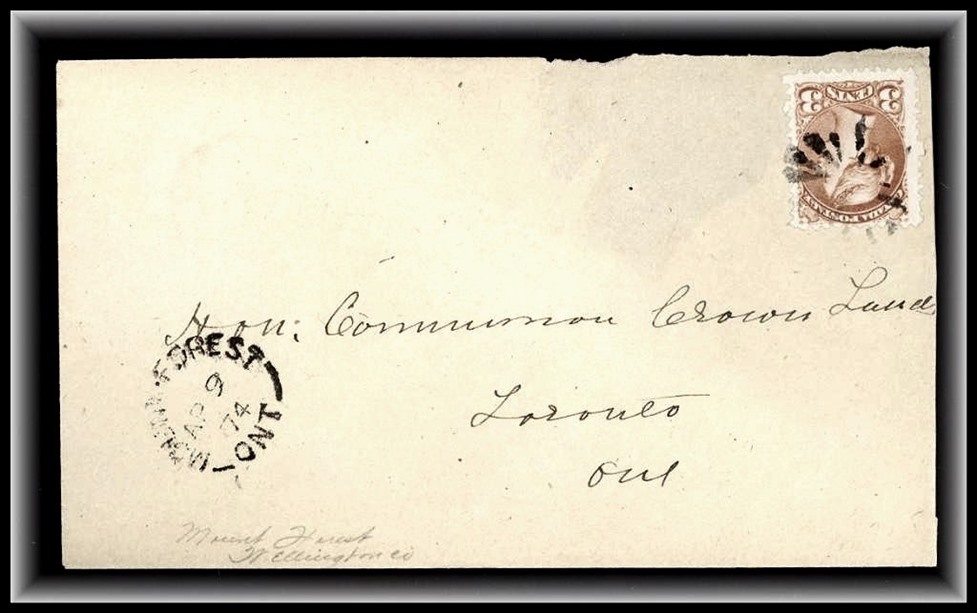 3 CENTS 3
CANADA POSTAGE
Hon: Commission Crown Lands
Toronto
Ont
MOUNT FOREST
AP 9
74
ONT
Mount Forest
Wellington co